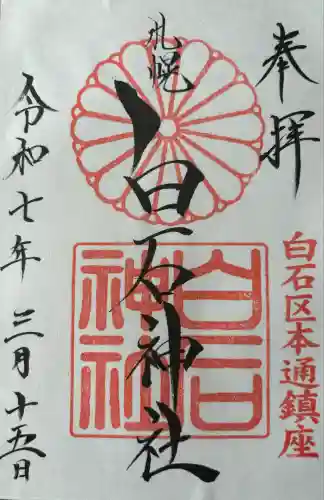 奉拝
白石区本通鎮座
札幌
白石神社
白石
神社
令和七年 三月十五日